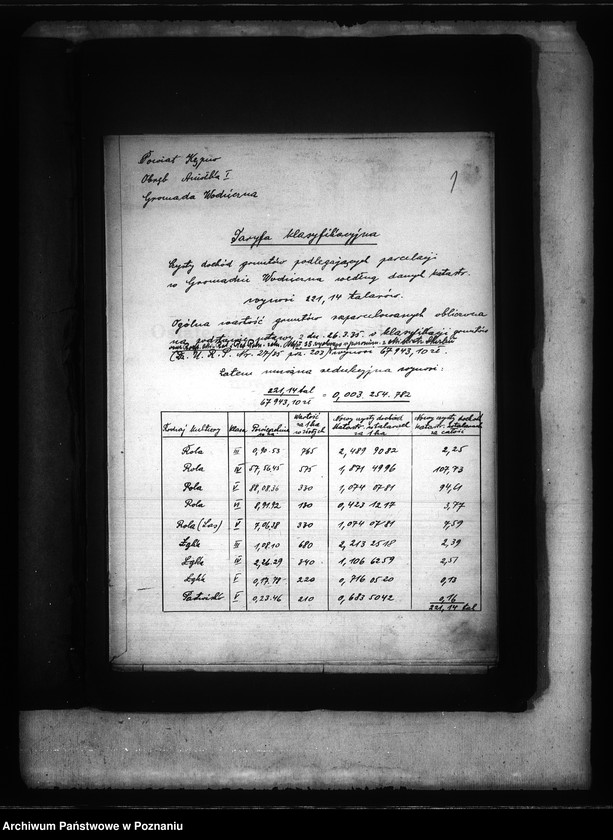 Powiat Kępno
Obręb Aniołka I
Gromada Wodziczna
1
Taryfa klasyfikacyjna
Czysty dochód gruntów podlegających parcelacji
w Gromadzie Wodziczna według danych katastr.
wynosi 221,14 talarów.
Ogólna wartość gruntów rozparcelowanych obliczona
na podstawie ustawy z dn. 26.3.35 o klasyfikacji gruntów
(Dz. U. R. P. Nr. 27/35 poz. 203) wynosi 67 943,10 zł.
Zatem mnożna redukcyjna wynosi:
221,14 tal
67 943,10 zł = 0,003. 254. 782
Rodzaj kultury Klasa Powierzchnia Wartość za 1 ha w złotych Nowy czysty dochód katastr. w talarach za 1 ha Nowy czysty dochód katastr. w talarach za całość
Rola III 0,90.53 765 2,489 9082 2,25
Rola IV 57,56.45 575 1,871 4996 107,73
Rola V 88,08.36 330 1,074 0781 94,61
Rola VI 8,91.92 130 0,423 1217 3,77
Rola (Las) V 7,06.38 330 1,074 0781 7,59
Łąka III 1,08.10 680 2,213 2518 2,39
Łąka IV 2,26.29 340 1,106 6259 2,51
Łąka V 0,17.78 220 0,716 0520 0,13
Pastwisko V 0,23.46 210 0,683 5042 0,16
221,14 tal
Archiwum Państwowe w Poznaniu